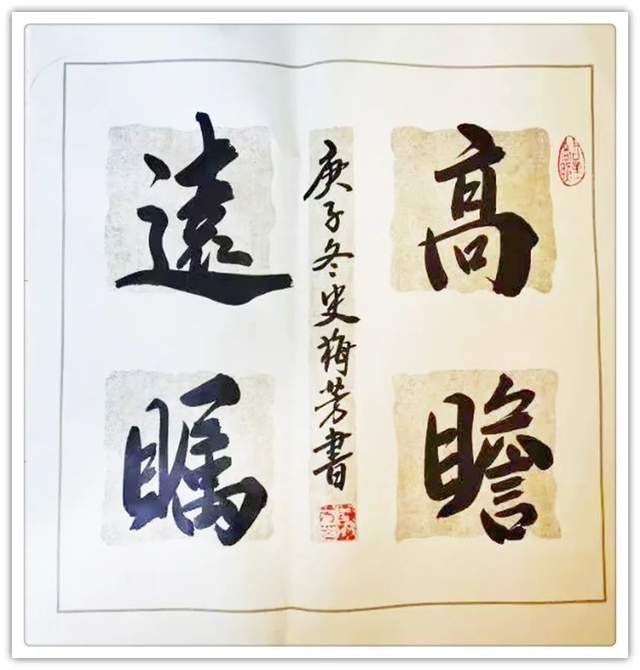 高瞻
遠瞩
庚子冬史梅芳書